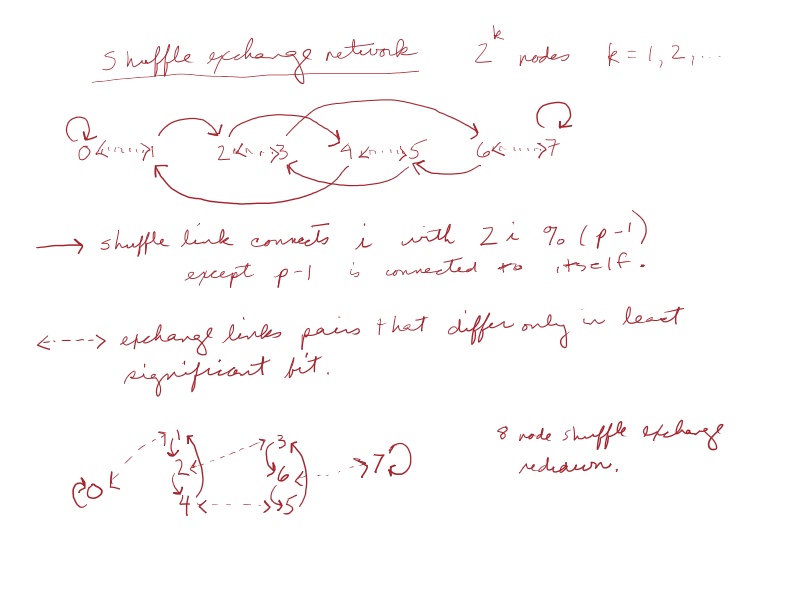 Shuffle exchange network 2^k nodes k = 1, 2, ...
0 1 2 3 4 5 6 7
shuffle link connects i with 2i % (p-1)
except p-1 is connected to itself.
exchange links pairs that differ only in least
significant bit.
8 node shuffle exchange
redrawn.
1 3
2 6 7
0
4 5